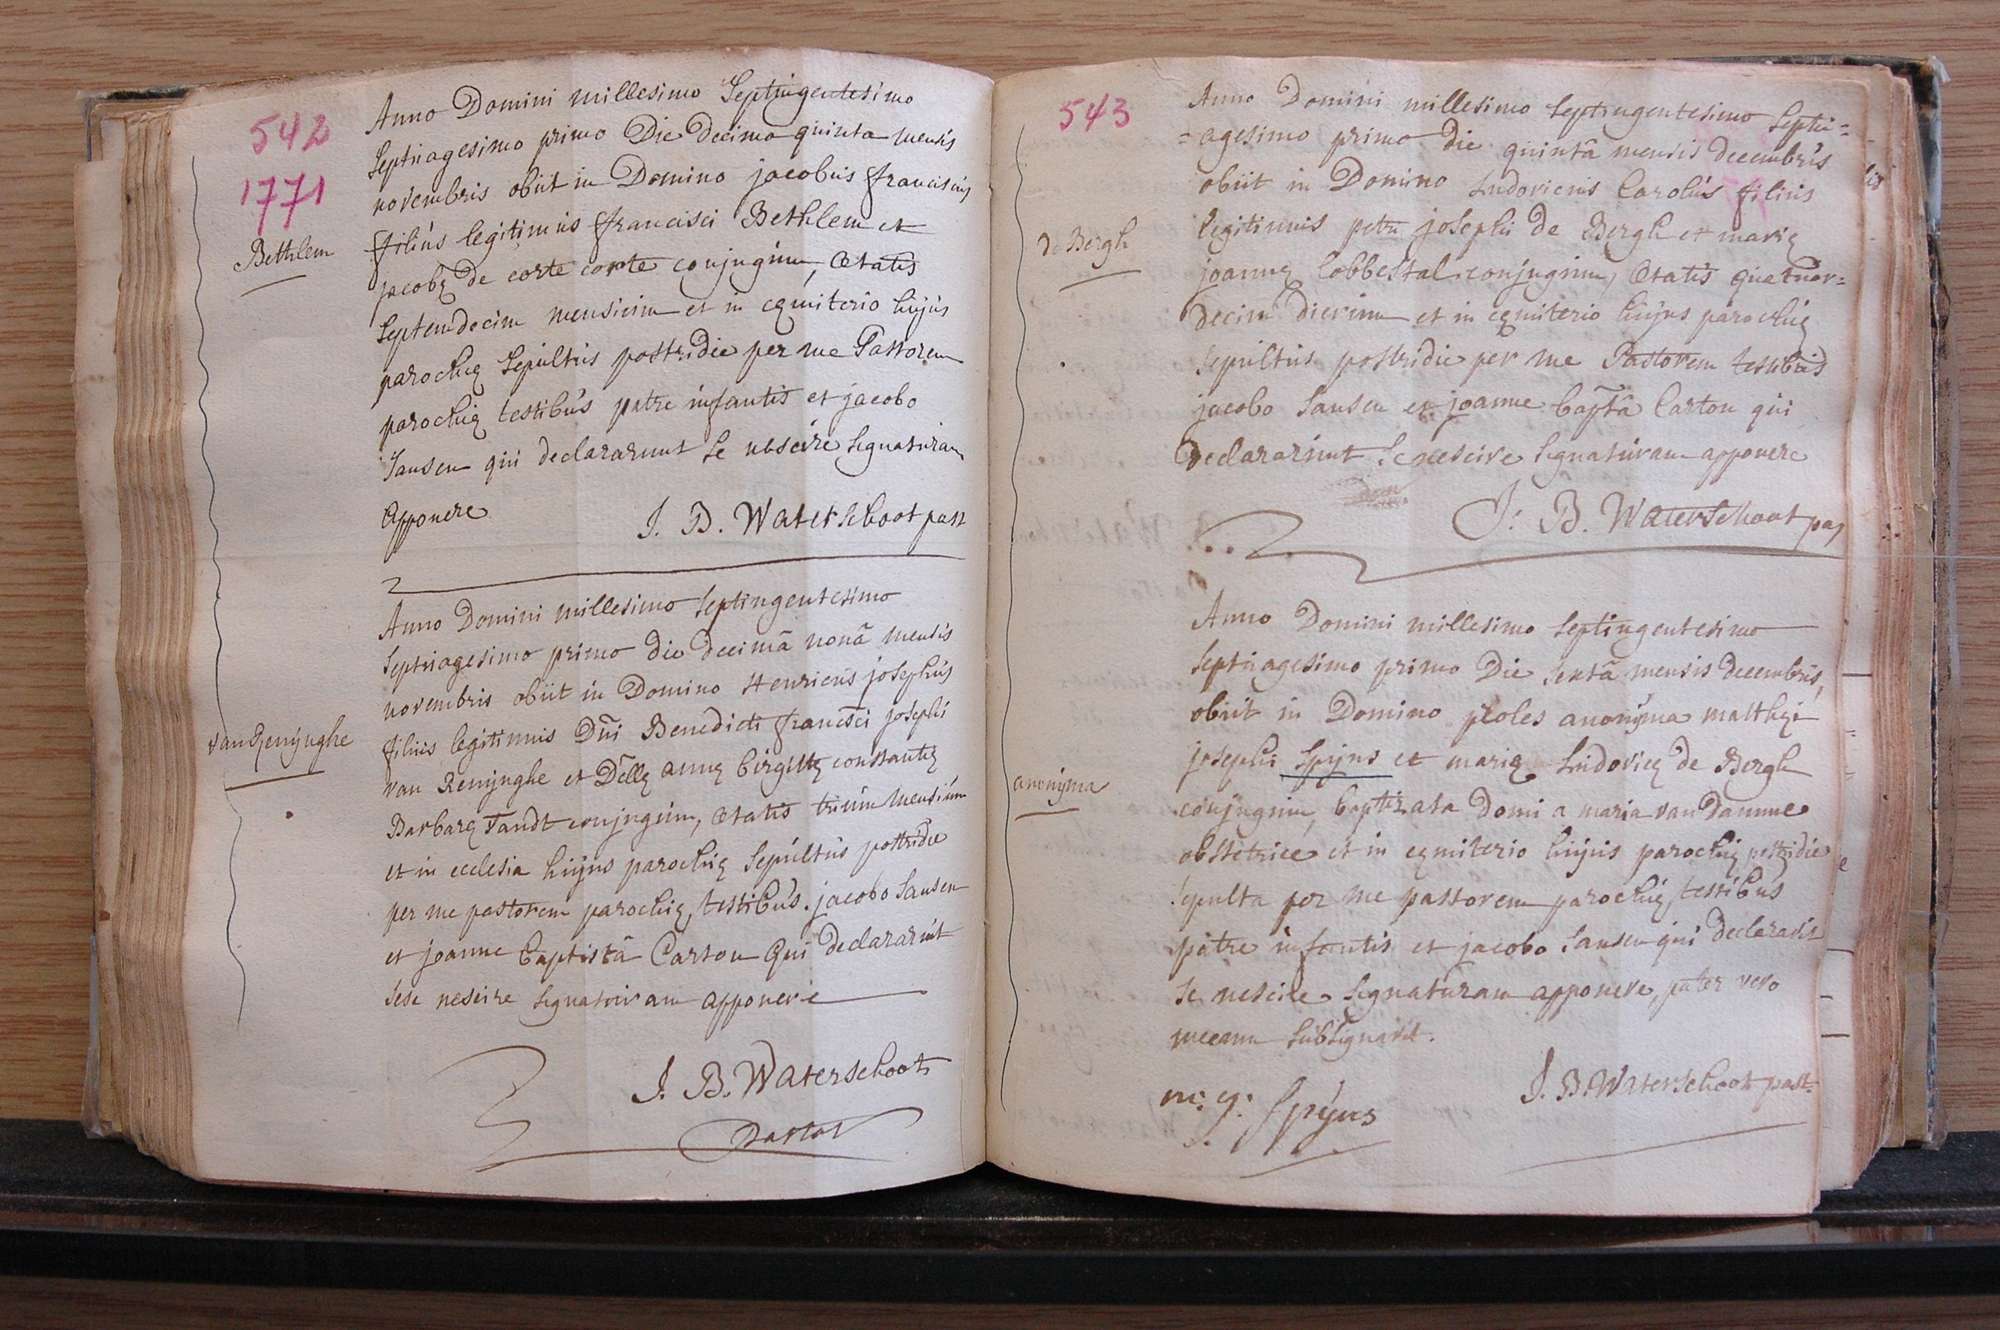 542
1771
Bethlem
Anno Domini millesimo Septingentesimo
Septuagesimo primo Die decima quinta mensis
novembris obiit in Domino jacobus franciscus
filius legitimus francisci Bethlem et
jacobę de corte corte conjugum, Ætatis
Septemdecim mensium et in cęmiterio hujus
parochię Sepultus postridie per me Pastorem
parochię testibus patre infantis et jacobo
Sansen qui declararunt se nescire signaturam
apponere
J. B. Waterschoot past
van Renynghe
Anno Domini millesimo Septingentesimo
Septuagesimo primo die decimâ nonâ mensis
novembris obiit in Domino Henricus josephus
filius legitimus Dni Benedicti francisci josephi
van Renynghe et Dellę annę birgittę constantię
Barbarę Tandt conjugum, Ætatis trium mensium
et in ecclesia hujus parochię Sepultus postridie
per me pastorem parochię, testibus jacobo Sansen
et joanne baptistâ Carton qui declararunt
sese nescire signaturam apponere
J. B. Waterschoot
Pastor
543
de Bergh
Anno Domini millesimo septingentesimo septu=
=agesimo primo die quintâ mensis decembris
obiit in Domino Ludovicus Carolus filius
legitimus petri josephi de Bergh et marię
joannę Cobbestal conjugum, Ætatis quatuor=
decim dierum et in cęmiterio hujus parochię
sepultus postridie per me Pastorem testibus
jacobo Sansen et joanne baptâ Carton qui
declararunt se nescire signaturam apponere
J. B. Waterschoot pas
anonyma
Anno Domini millesimo septingentesimo
septuagesimo primo Die sextâ mensis decembris,
obiit in Domino proles anonyma matthęi
josephi Spyns et marię Ludovicę de Bergh
conjugum, baptizata domi a maria van Damme
obstetrice et in cęmiterio hujus parochię postridie
sepulta per me pastorem parochię, testibus
patre infantis et jacobo Sansen qui declaravit
se nescire signaturam apponere, pater vero
mecum subsignavit.
m: j: Spyns
J. B. Waterschoot past.